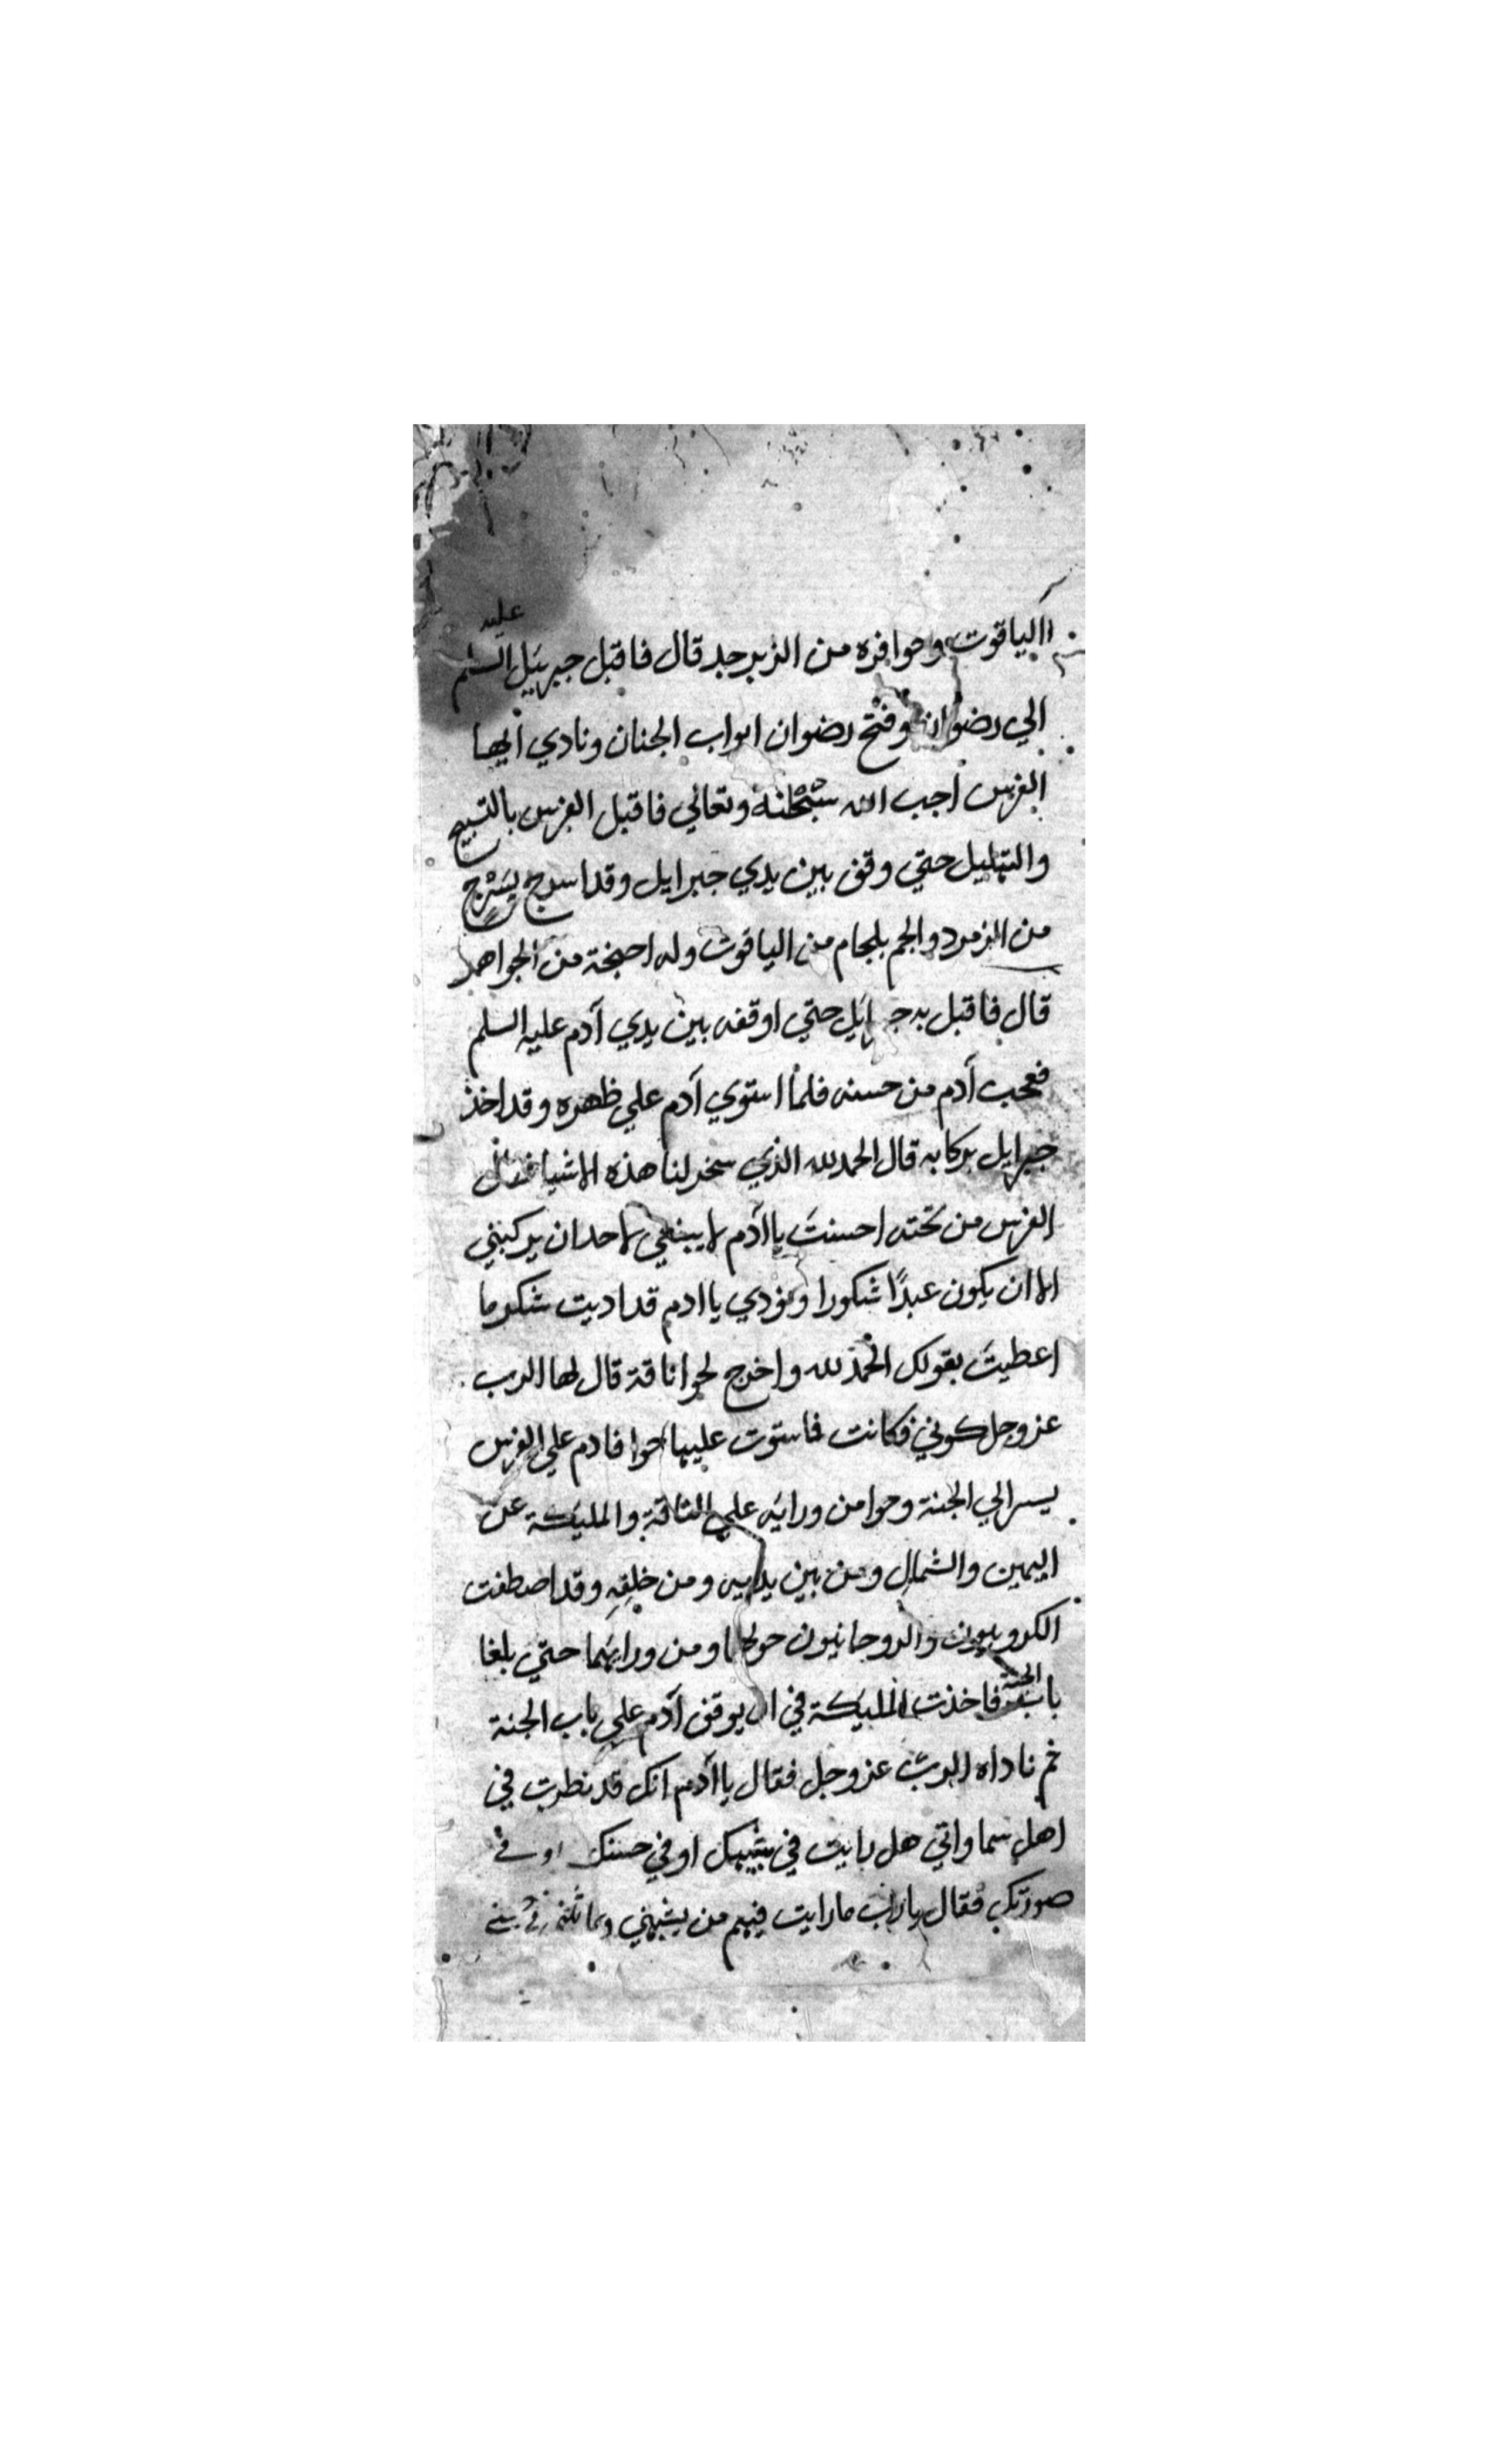 الياقوت وحوافره من الزبرجد قال فاقبل جبريىل عليه السلم
الي رضوان وفتح رضوان ابواب الجنان ونادي ايها
الفرس اجب الله سبْحٰنه وتعالي فاقبل الفرس بالتسبيح
والتهليل حتي وقف بين يدي جبرايل وقد اسرج بسَرْج
من الزمرد والجم بلجام من الياقوت وله اجنحة من الجواهر
قال فاقبل به حتي اوقفه بين يدي آدم عليه السلم
فعجب آدم من حسنه فلما استوي آدم علي ظهره وقد اخذ
جبرايل بركابه قال الحمد لله الذي سخر لنا هذه الاشيا فقال
الفرس من تحته احسنتَ يا آدم لا ينبغي لاحد ان يركبني
الا ان يكون عبدًا شكورا ونودي يا ادم قد اديت شكر ما
اعطيتَ بقولك الحمد لله واخرج لحوا ناقة قال لها الرب
عز وجل كوني فكانت فاستوت عليها حوا فادم علي الفرس
يسر الي الجنة وحوا من ورايه علي الناقة والمليكة عن
اليمين والشمال ومن بين يديه ومن خلفِهِ وقد اصطفت
الكروبيون والروحانيون حولهما ومن ورايهما حتي بلغا
باب الجنة فاخذت المليكة في ان يوقف آدم علي باب الجنة
ثم ناداه الرب عز وجل فقال يا آدم انك قد نظرت في
اهل سماواتي هل رايت في شبهك او في حسنك او في
صورتك فقال يا رب ما رايت فيهم من يشبهني